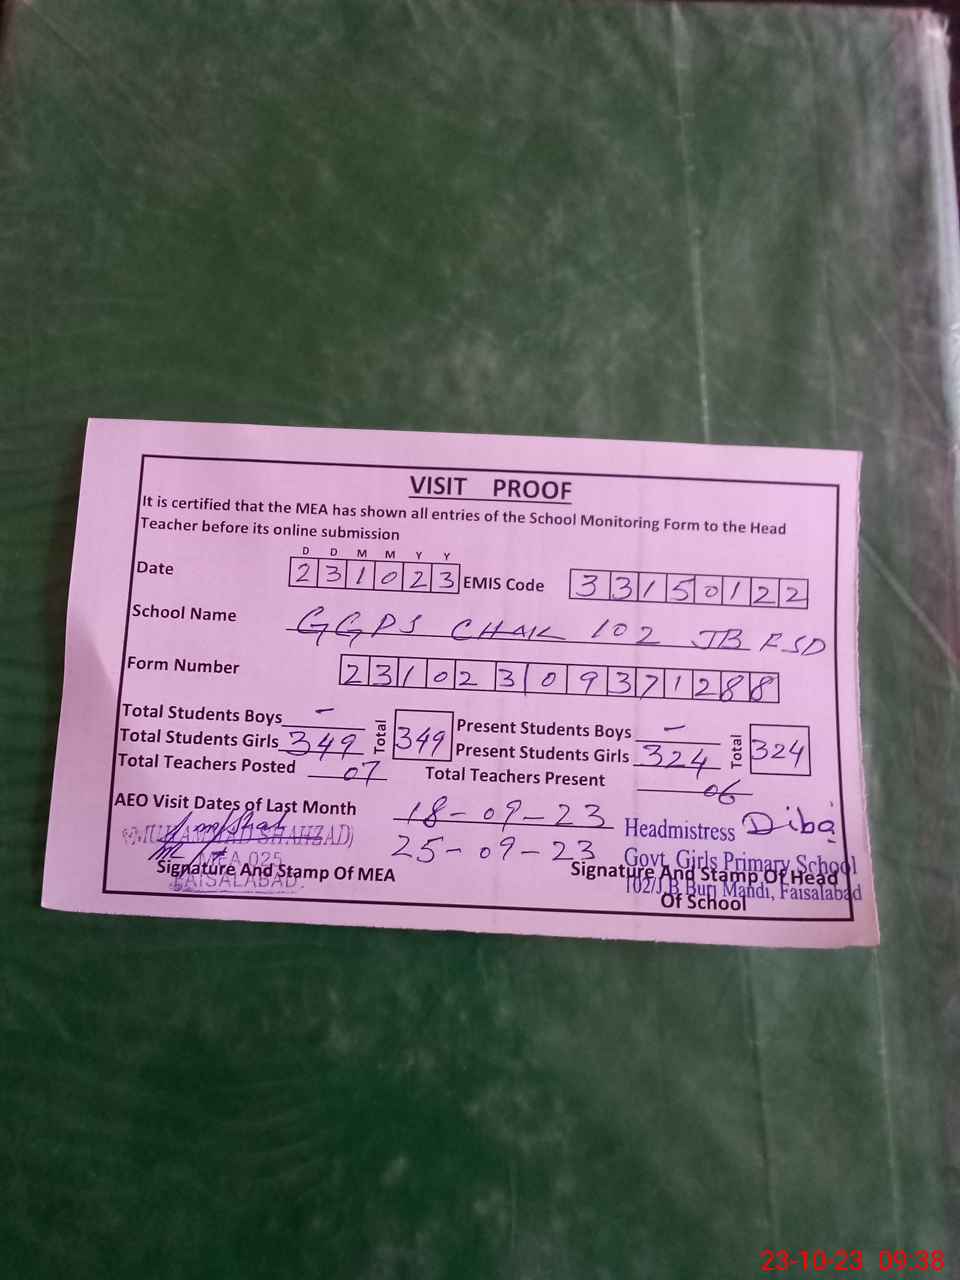 VISIT PROOF
It is certified that the MEA has shown all entries of the School Monitoring Form to the Head
Teacher before its online submission
D D M M Y Y
Date 231023 EMIS Code 33150122
School Name GGPS CHAK 102 JB FSD
Form Number 23102309371288
Total Students Boys - Total 349 Present Students Boys - Total 324
Total Students Girls 349 Present Students Girls 324
Total Teachers Posted 07 Total Teachers Present 06
AEO Visit Dates of Last Month 18-09-23
25-09-23
(MUHAMMAD SHAHZAD)
MEA 025
FAISALABAD.
Signature And Stamp Of MEA
Headmistress Diba
Govt. Girls Primary School
102/J.B Burj Mandi, Faisalabad
Signature And Stamp Of Head
Of School
23-10-23 09:38